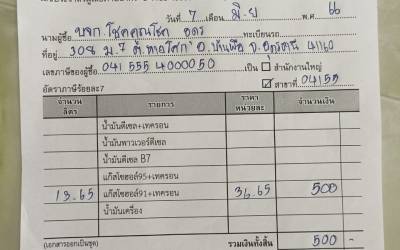 วันที่ 7 เดือน มิ.ย พ.ศ. 66
นามผู้ซื้อ บจก. โชคคุณโชค อุดร ทะเบียนรถ
ที่อยู่ 308 ม.7 ต. หาดโศก อ. บ้านผือ จ. อุดรธานี 41160
เลขภาษีของผู้ซื้อ 041 555 4000050 เป็น สำนักงานใหญ่
อัตราภาษีร้อยละ7 สาขาที่ 04155
จำนวนลิตร รายการ ราคาหน่วยละ จำนวนเงิน
น้ำมันดีเซล+เทครอน
น้ำมันพาวเวอร์ดีเซล
น้ำมันดีเซล B7
แก๊สโซฮอล์95+เทครอน
13.65 แก๊สโซฮอล์91+เทครอน 36.65 500
น้ำมันเครื่อง
(เอกสารออกเป็นชุด) รวมเงินทั้งสิ้น 500 -